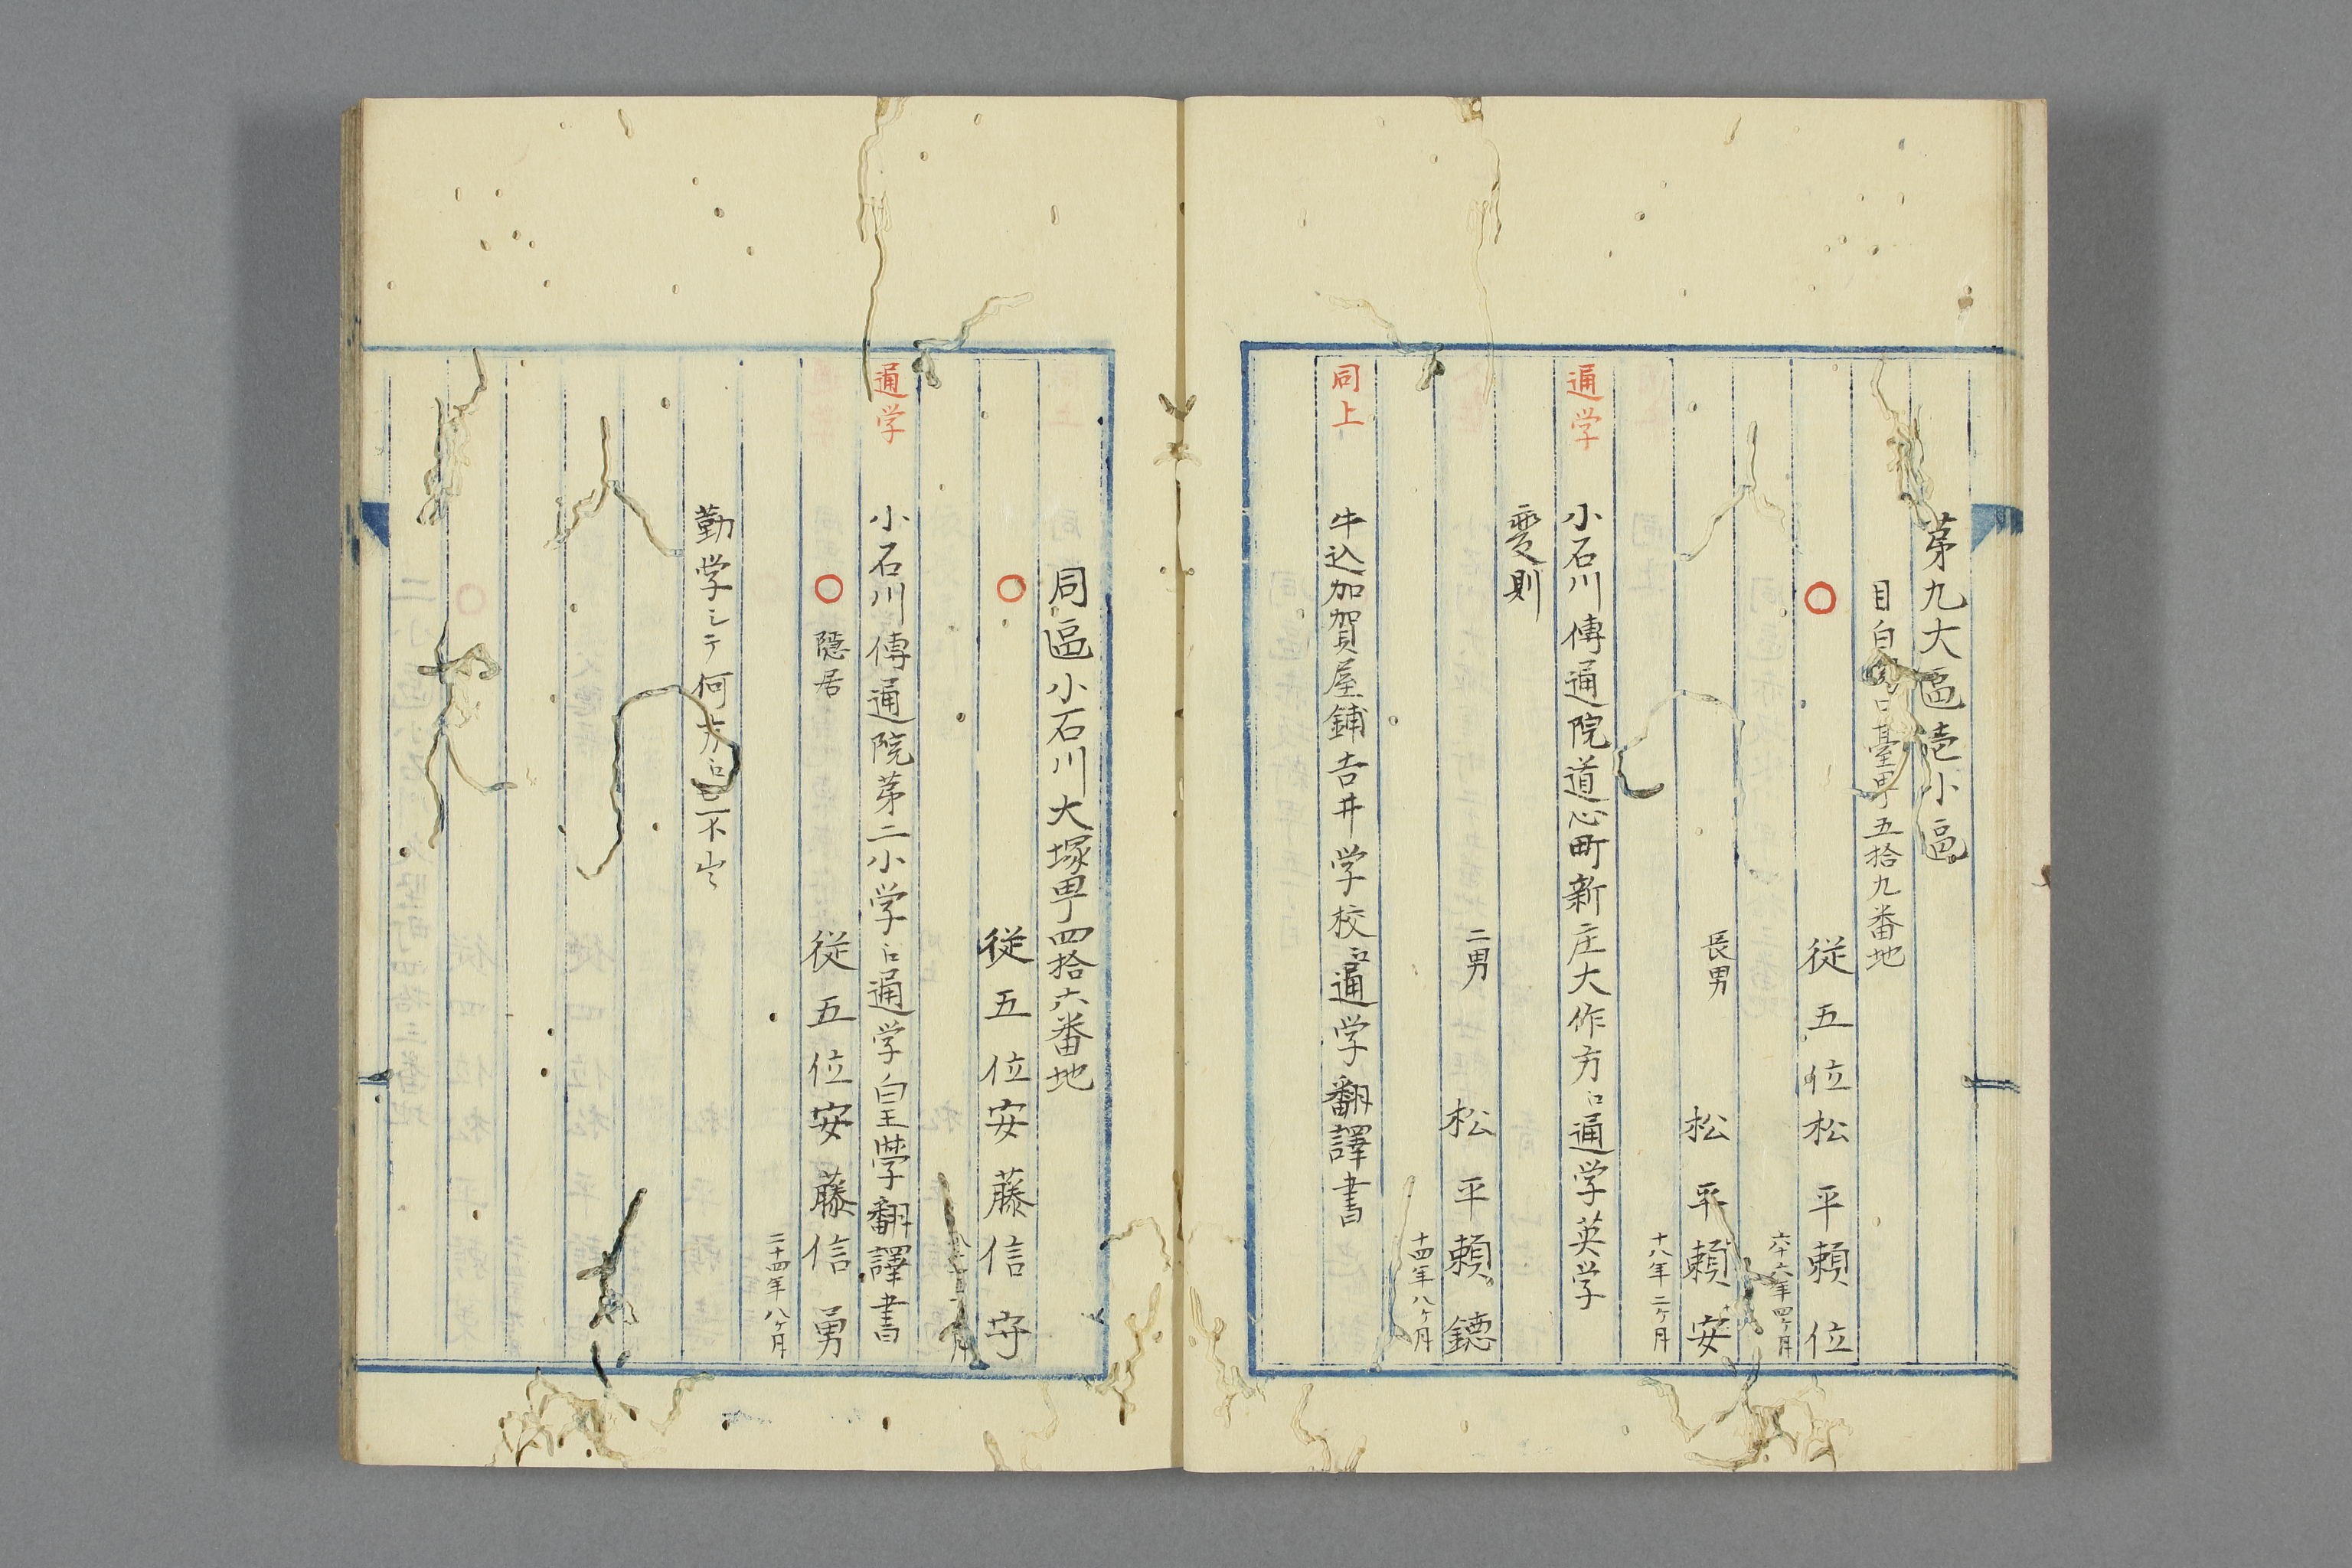 第九大區壱小區
目白臺町五拾九番地
○ 従五位松平頼位
六十六年四ヶ月
長男 松平頼安
十八年二ヶ月
通学 小石川傳通院道心町新庄大作方ヘ通学英学
変則
二男 松平頼鐚
十四年八ヶ月
同上 牛込加賀屋鋪吉井学校ヘ通学翻譯書
同區小石川大塚町四拾六番地
○ 従五位安藤信守
月
通学 小石川傳通院第二小学ヘ通学皇學翻譯書
○ 隠居 従五位安藤信勇
二十四年八ヶ月
勤学シテ何方ヘモ不出